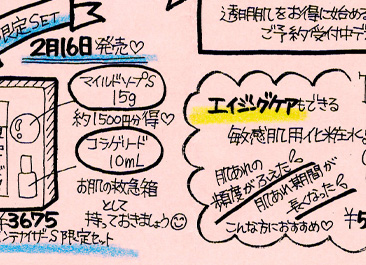 限定SET
2月16日発売♡
マイルドソープS
15g
約1500円分得♡
コラゲリード
10mL
お肌の救急箱
として
持っておきましょう☺
¥3675
S限定セット
透明肌をお得に始める
ご予約受付中デ
エイジングケアもできる
敏感肌用化粧水
肌あれの
頻度がふえた
肌あれ期間が
長くなった
こんな方におすすめ♡
¥5